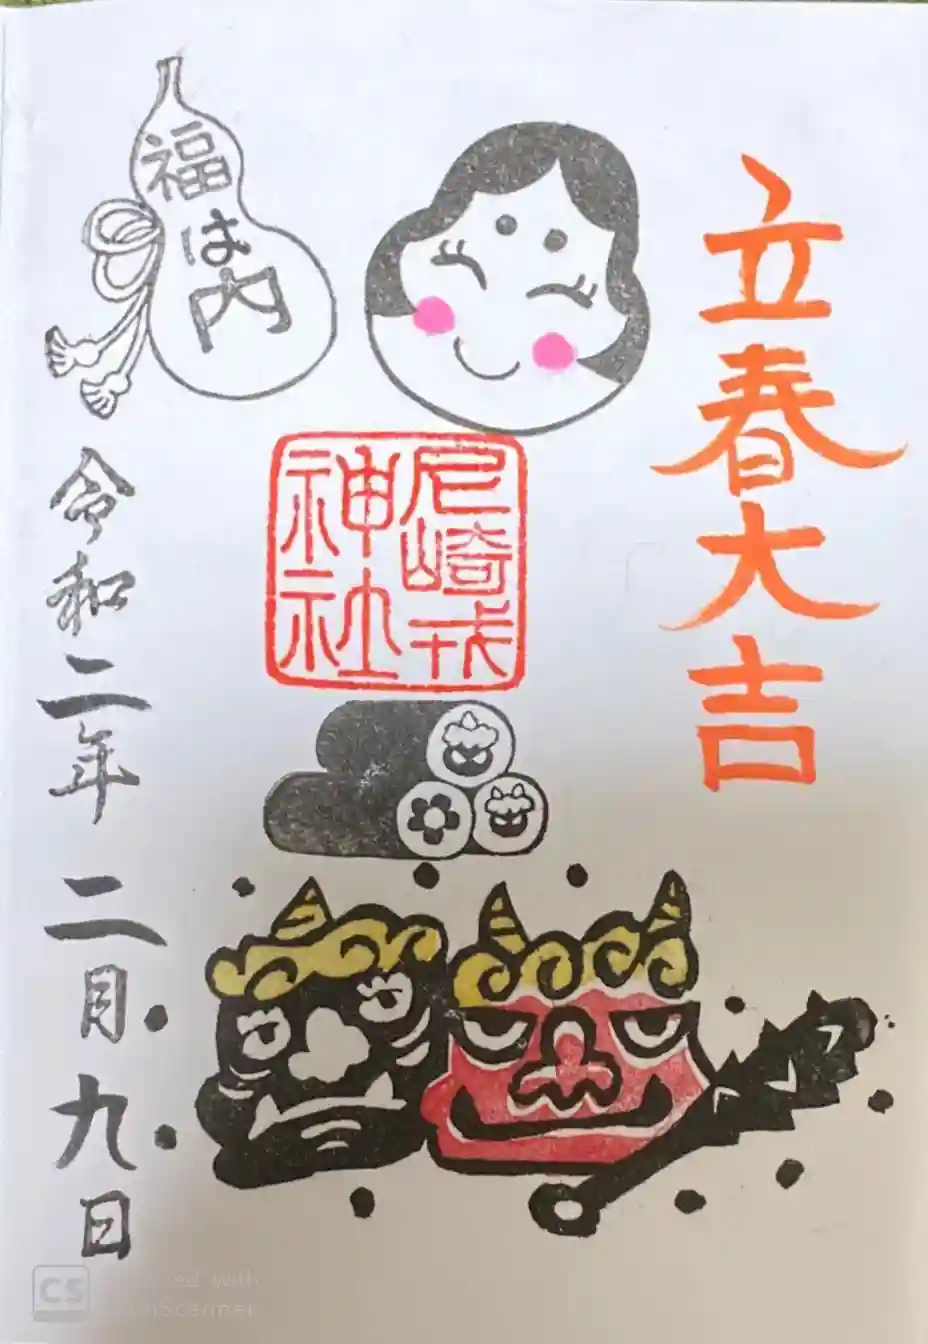 立春大吉
福は内
尼崎戎
神社
令和二年 二月九日
CS